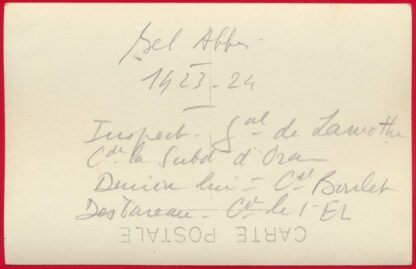 Bel Abbès
1923-24
Inspect. Gal de Lamothe
Cdt la Subd d'Oran
Derrière lui = Cel Boulet
Destareau - Ct le 1 EL
CARTE POSTALE